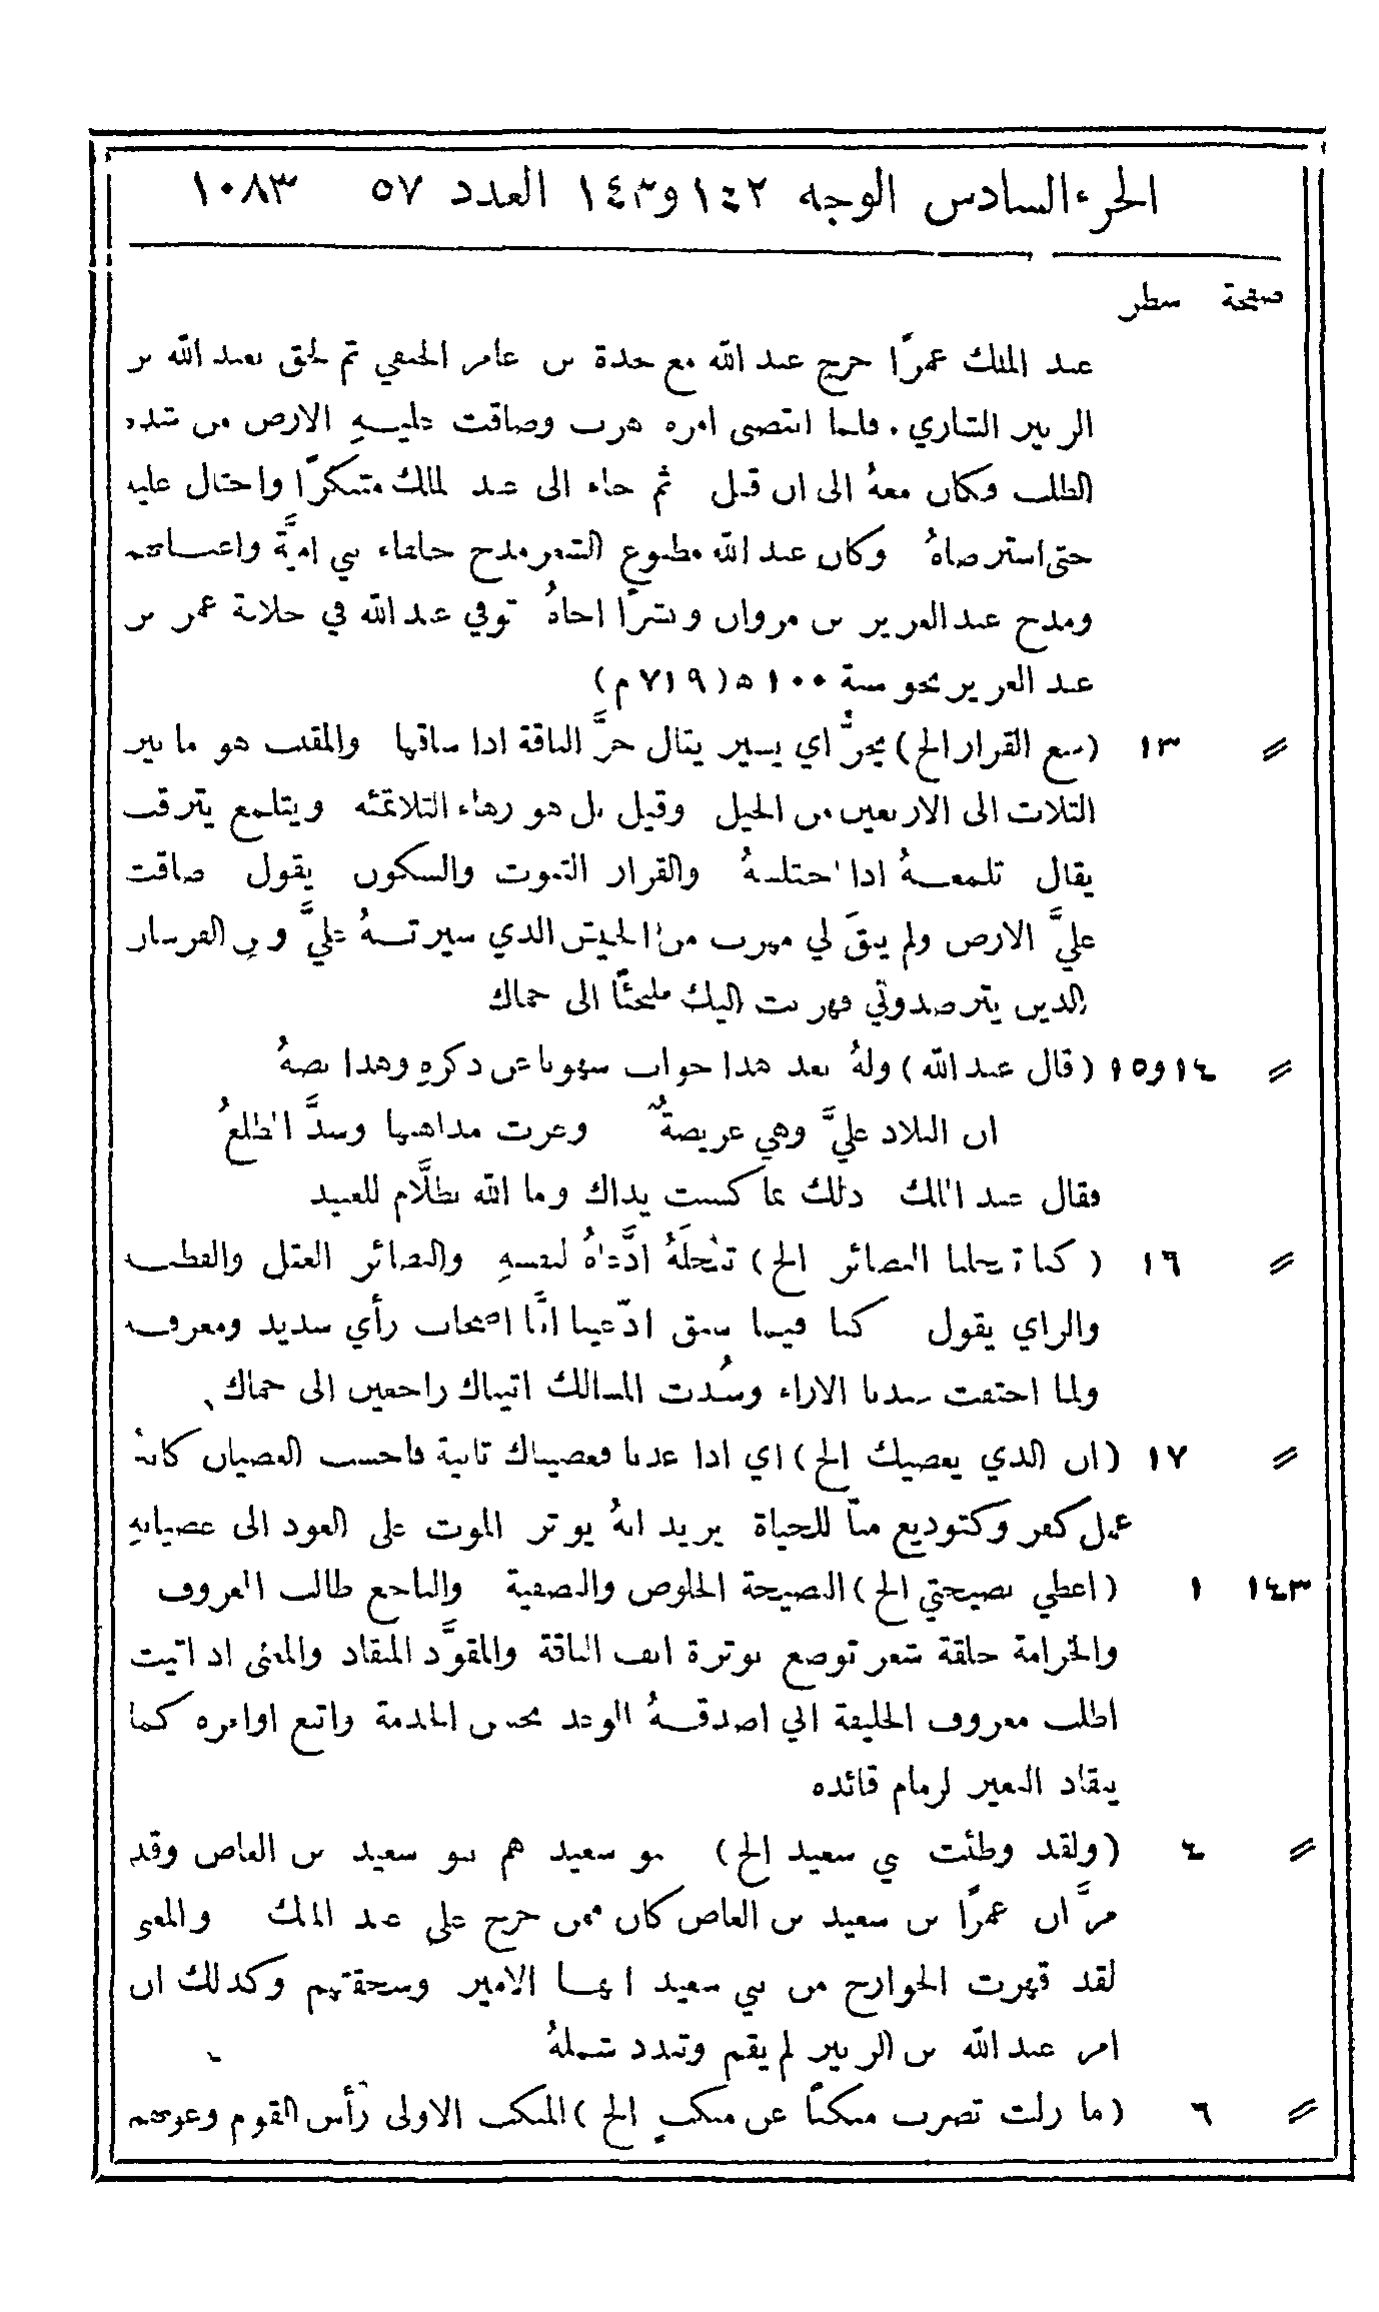 الجزء السادس الوجه ١٤٢ و١٤٣ العدد ٥٧ ١٠٨٣
صفحة سطر
عبد الملك عمرًا خرج عبد الله مع نجدة بن عامر الحنفي ثم لحق بعبد الله بن
الزبير الشاري. فلما انقضى امره هرب وضاقت عليهِ الارض من شدة
الطلب وكان معهُ الى ان قتل ثم جاء الى عبد الملك متنكرًا واحتال عليه
حتى استرضاهُ وكان عبد الله مطبوع الشعر مدح خلفاء بني اميَّة واعيانهم
ومدح عبد العزيز بن مروان وبشرًا اخاهُ توفي عبد الله في خلافة عمر بن
عبد العزيز نحو سنة ١٠٠ ه (٧١٩ م)
〃 ١٣ (منع القرار الخ) يجرُّ اي يسير يقال جرَّ الناقة اذا ساقها والمقنب هو ما بين
الثلاث الى الاربعين من الخيل وقيل بل هو زهاء الثلاثمئه ويتلمع يترقب
يقال تلمعهُ اذا اختلسهُ والقرار الثبوت والسكون يقول ضاقت
عليَّ الارض ولم يبقَ لي مهرب من الجيش الذي سيرتهُ عليَّ ومن الفرسان
الذين يترصدوني فهربت اليك ملتجئًا الى حماك
〃 ١٤ و١٥ (قال عبد الله) ولهُ بعد هذا جواب سهونا عن ذكرهِ وهذا نصهُ
ان البلاد عليَّ وهي عريضةٌ وعرت مذاهبها وسدَّ المطلعُ
فقال عبد الملك ذلك بما كسبت يداك وما الله بظلَّام للعبيد
〃 ١٦ (كنا تنحلنا البصائر الخ) تنحلَهُ ادَّعاهُ لنفسهِ والبصائر العقل والفطنة
والراي يقول كنا فيما سبق ادّعينا انَّا اصحاب رأي سديد ومعرفة
ولما اخفقت بيدنا الاراء وسُدت المسالك اتيناك راجعين الى حماك
〃 ١٧ (ان الذي يعصيك الخ) اي اذا عدنا فعصيناك ثانية فاحسب العصيان كانهُ
عمل كفر وكتوديع منَّا للحياة يريد انهُ يوثر الموت على العود الى عصيانهِ
١٤٣ ١ (اعطي نصيحتي الخ) النصيحة الخلوص والتصفية والناجع طالب المعروف
والخزامة حلقة شعر توضع بوترة انف الناقة والمقوَّد المنقاد والمعنى اذ اتيت
اطلب معروف الخليفة اني اصدقهُ الوعد بحسن الخدمة واتبع اوامره كما
ينقاد البعير لزمام قائده
〃 ٤ (ولقد وطئت بني سعيد الخ) بنو سعيد هم بنو سعيد بن العاص وقد
مرَّ ان عمرًا بن سعيد بن العاص كان ممن خرج على عبد الملك والمعنى
لقد قهرت الخوارج من بني سعيد ايها الامير وسحقتهم وكذلك ان
امر عبد الله بن الزبير لم يقم وتبدد شملهُ
〃 ٦ (ما زلت تضرب منكبًا عن منكبٍ الخ) المنكب الاولى رأس القوم وعونهم